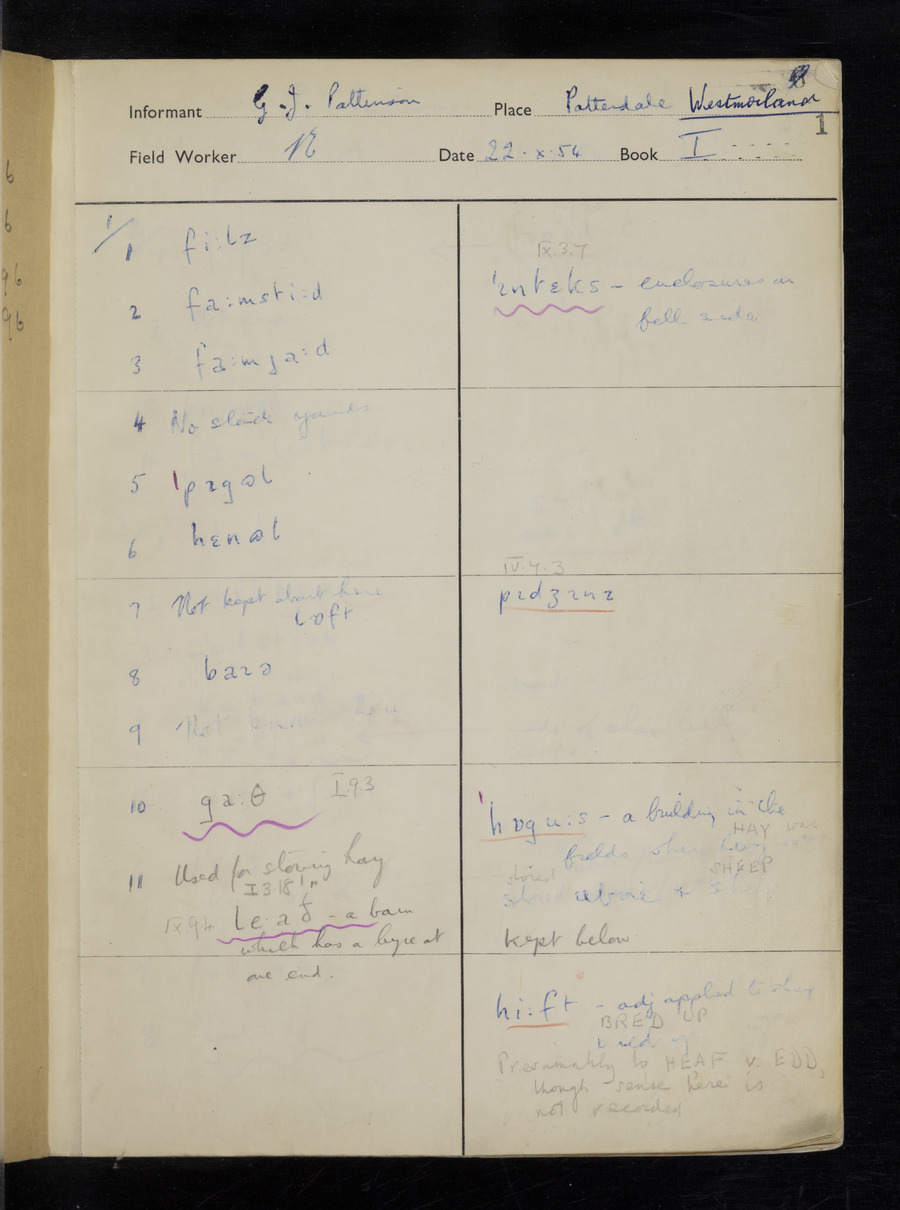 Informant G. J. Pattinson Place Patterdale Westmorland
1
Field Worker Date 22 · x · 54 Book I
1/
1 fi:lz
2 fa:msti:d
3 fa:mja:d
4 No stack yards
5 ˈpɪgəl
6 hɛnəl
7 Not kept about here
lɒft
8 baɪə
9 Not know
10 ga:θ I.9.3
11 Used for storing hay
I 3 18
IX.9.4 - a barn
which has a byre at
one end.
IX.3.7
ˈɪntɛks – enclosures on
fell side
IV.4.3
pɪdʒɪnz
ˈhɒgu:s – a building in the
HAY was
fields where hay
stored SHEEP
stored above &
kept below
hi:ft – adj applied to sheep
BRED UP
Presumably to HEAF v. EDD,
though sense here is
not recorded
6
6
96
96